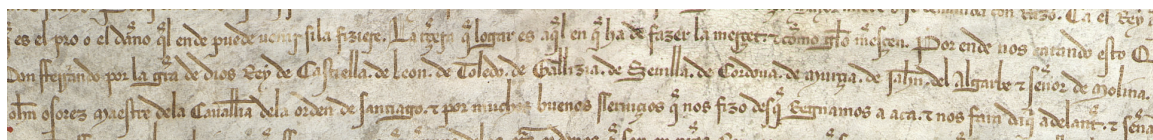 con razo. Ca el Rey
q̃ es el pro o el dãno q̃l ende puede uenir sila fiziere. La terçera q̃ logar es aq̃l en q̃ ha de fazer la merçet. ⁊ cõmo gelo meresçen. Por ende nos catando esto
Don fferrando por la grã de dios Rey de Castiella. de Leon. de Toledo. de Gallizia. de Seuilla. de Cordoua. de Murçia. de Jahen. del Algarbe ⁊ señor de Molina.
Johñ osorez Maestre dela Cauallia dela orden de santiago. ⁊ por muchos buenos sseruiçios q̃ nos fizo desq̃ Regnamos a aca. ⁊ nos fara daq̃ adelant̃. ⁊ sẽna